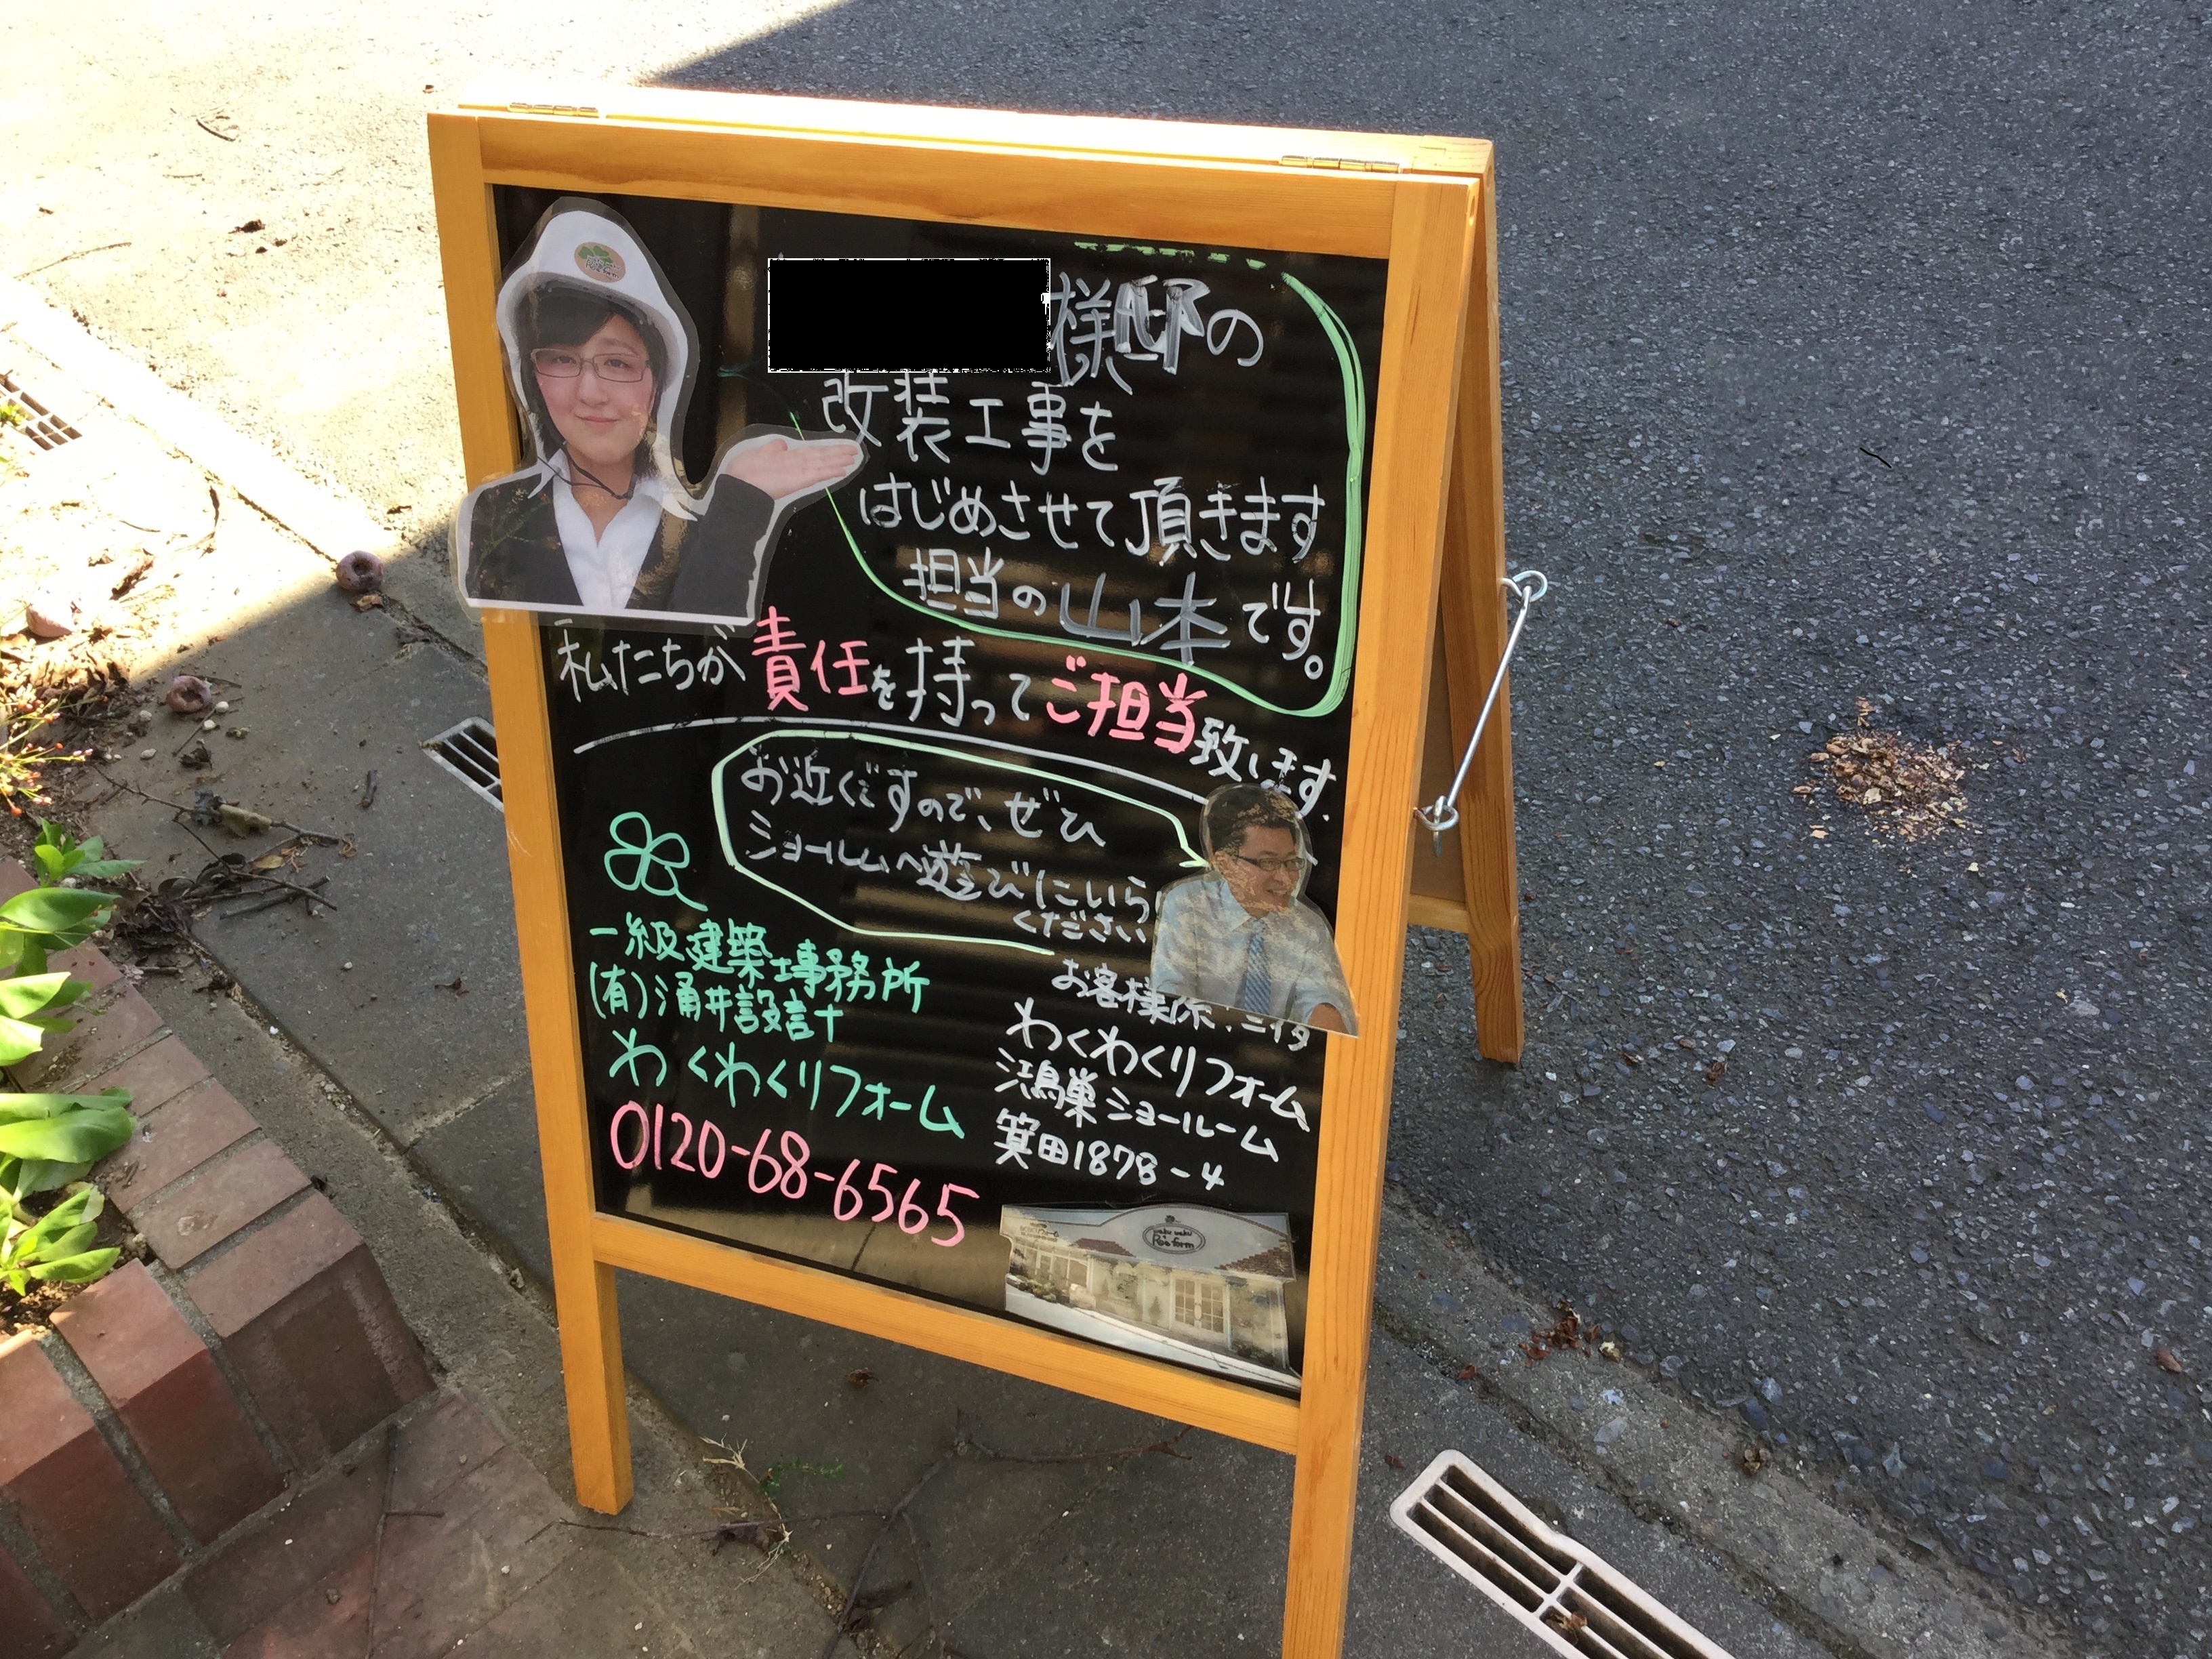 様邸の
改装工事を
はじめさせて頂きます
担当の山本です。
私たちが責任を持ってご担当致します.
お近くですので、ぜひ
ショールームへ遊びにいら
ください
一級建築士事務所
(有)涌井設計
わくわくリフォーム
0120-68-6565
お客様係
わくわくリフォーム
鴻巣ショールーム
箕田1878-4
waku waku
Ree form